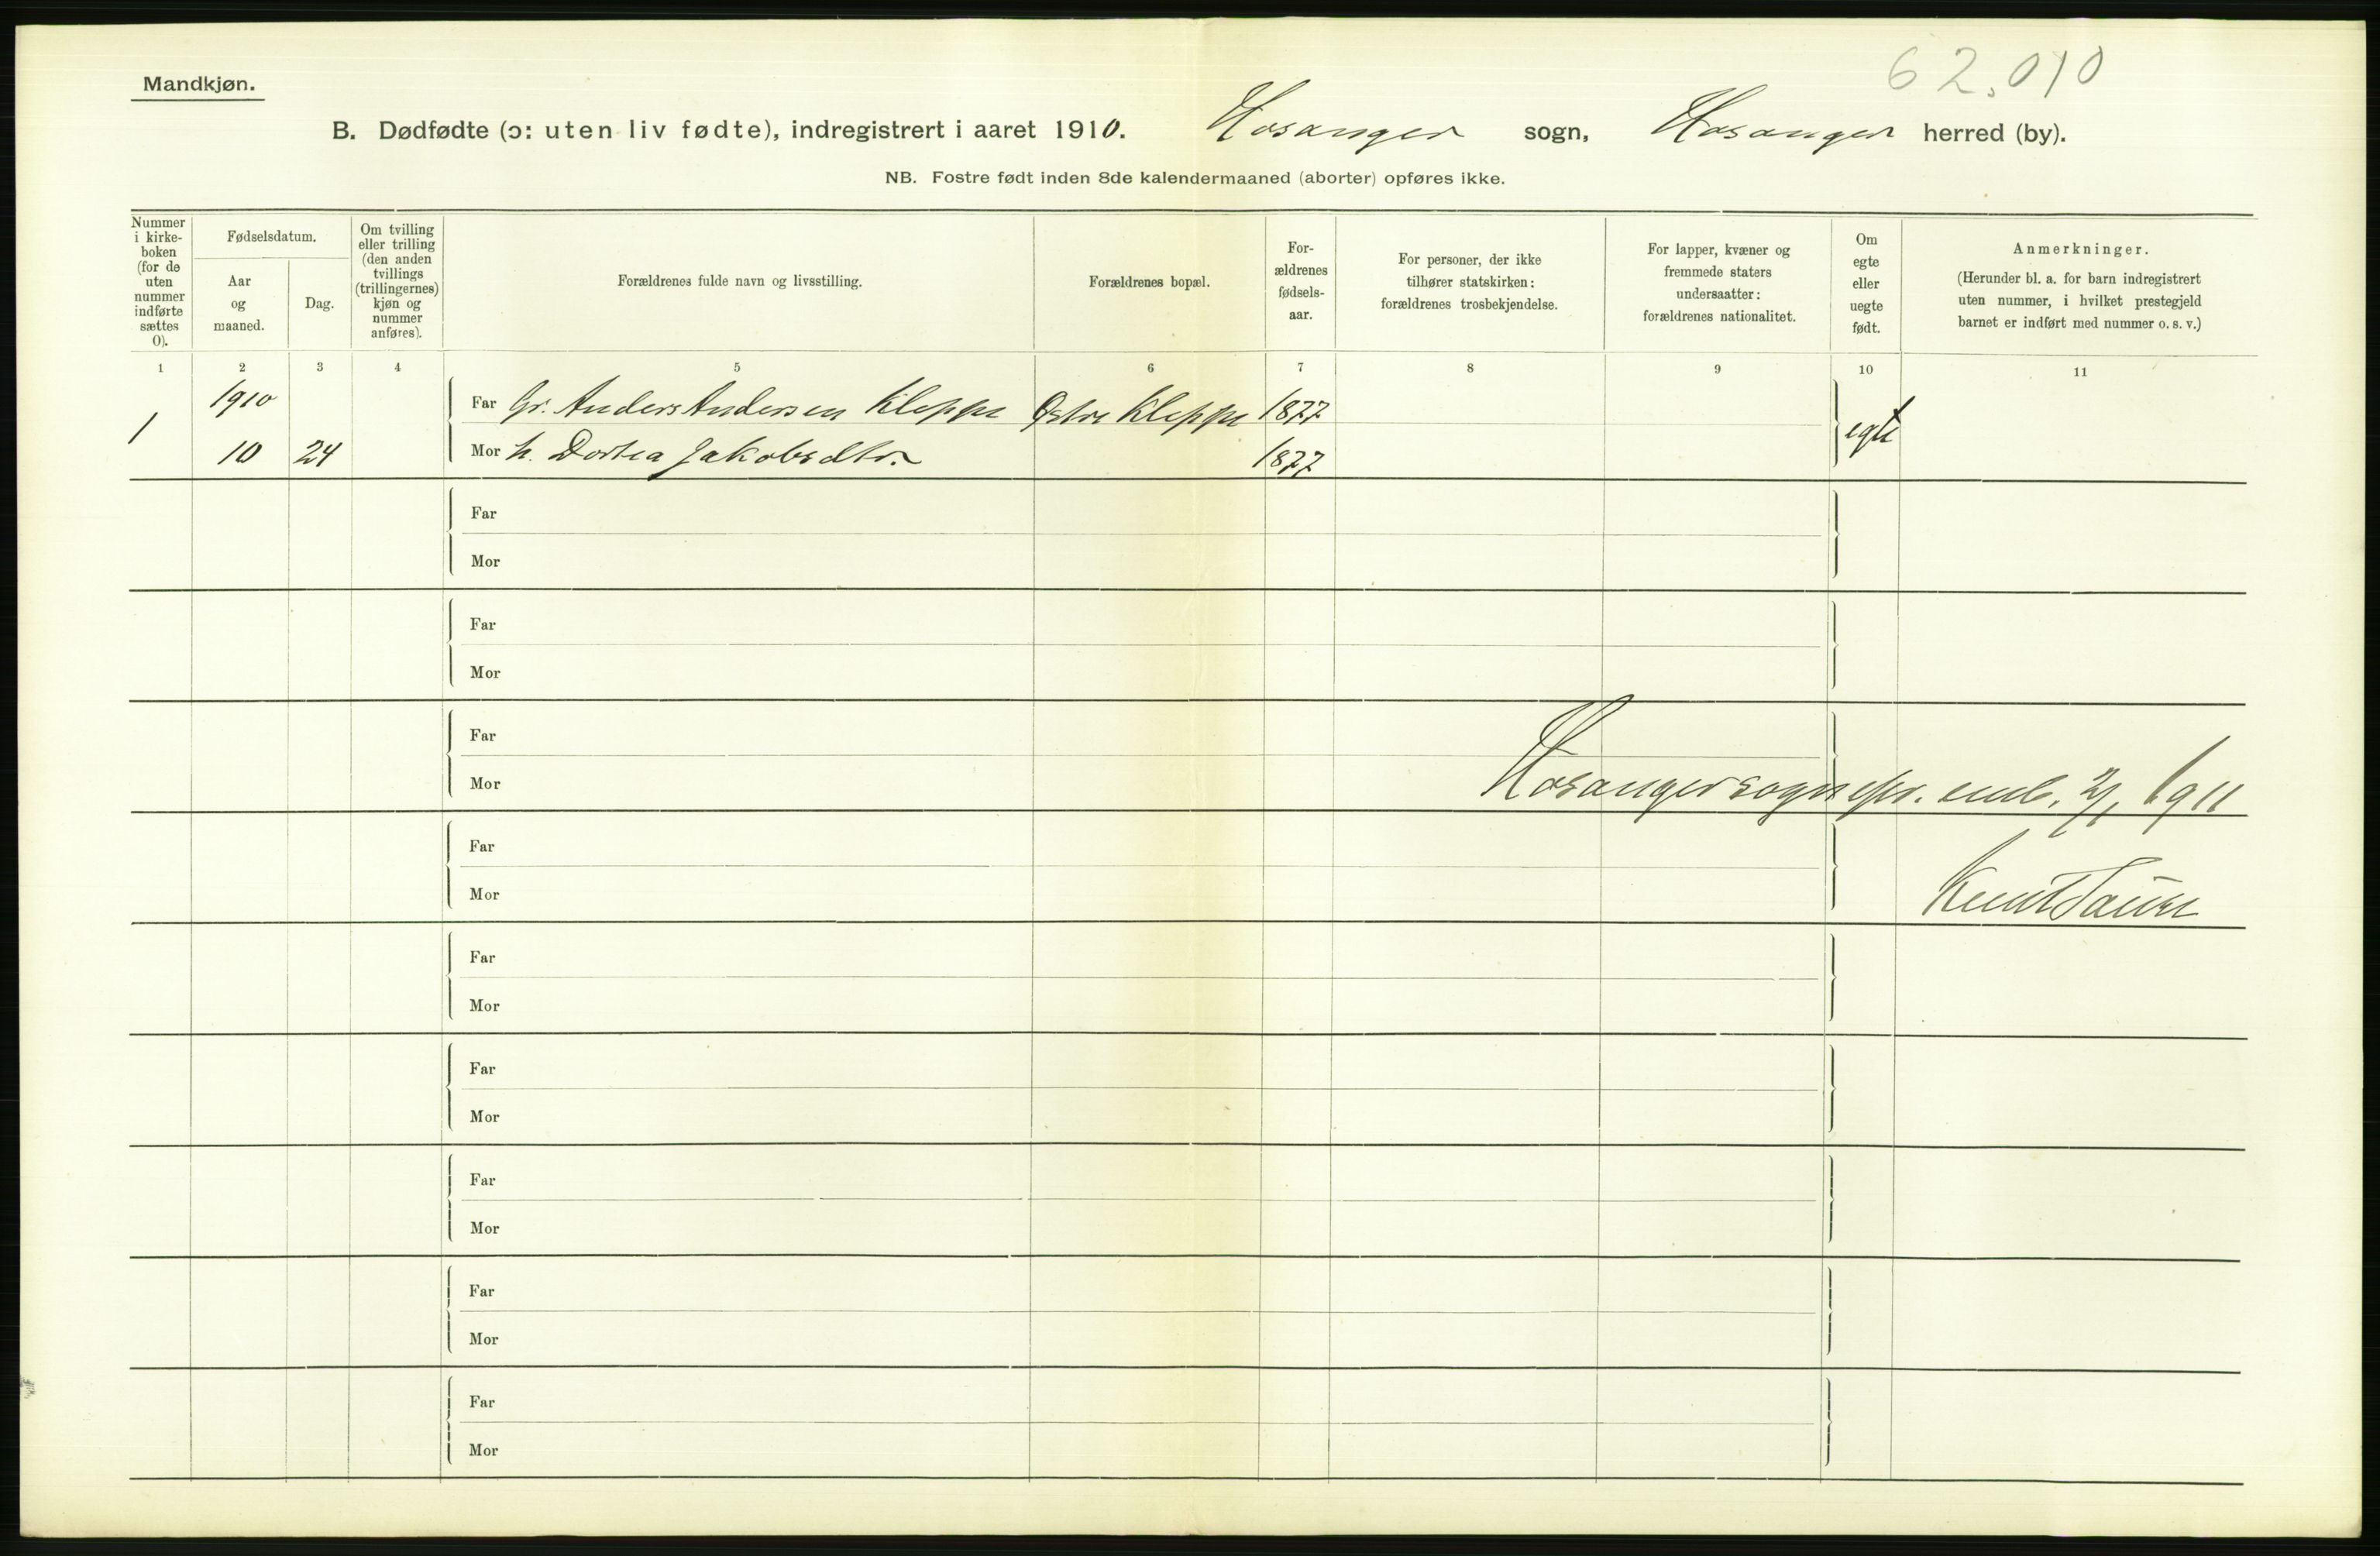 62.010
Mandkjøn.
B. Dødfødte (ɔ: uten liv fødte), indregistrert i aaret 1910. Hosanger sogn, Hosanger herred (by).
NB. Fostre født inden 8de kalendermaaned (aborter) opføres ikke.
Nummer
i kirke-
boken
(for de
uten
nummer
indførte
sættes
0).
Fødselsdatum.
Aar
og
maaned.
Dag.
Om tvilling
eller trilling
(den anden
tvillings
(trillingernes)
kjøn og
nummer
anføres).
Forældrenes fulde navn og livsstilling.
Forældrenes bopæl.
For-
ældrenes
fødsels-
aar.
For personer, der ikke
tilhører statskirken:
forældrenes trosbekjendelse.
For lapper, kvæner og
fremmede staters
undersaatter:
forældrenes nationalitet.
Om
egte
eller
uegte
født.
Anmerkninger.
(Herunder bl. a. for barn indregistrert
uten nummer, i hvilket prestegjeld
barnet er indført med nummer o. s. v.)
1 2 3 4 5 6 7 8 9 10 11
1910 Far Gr. Anders Andersen Kleppe Østre Kleppe 1877
1 egte
10 24 Mor h. Dortea Jakobsdtr. 1877
Far
Mor
Far
Mor
Far
Mor Hosanger sognepr. emb. 2/1 1911
Far
Mor Knut
Far
Mor
Far
Mor
Far
Mor
Far
Mor
Far
Mor